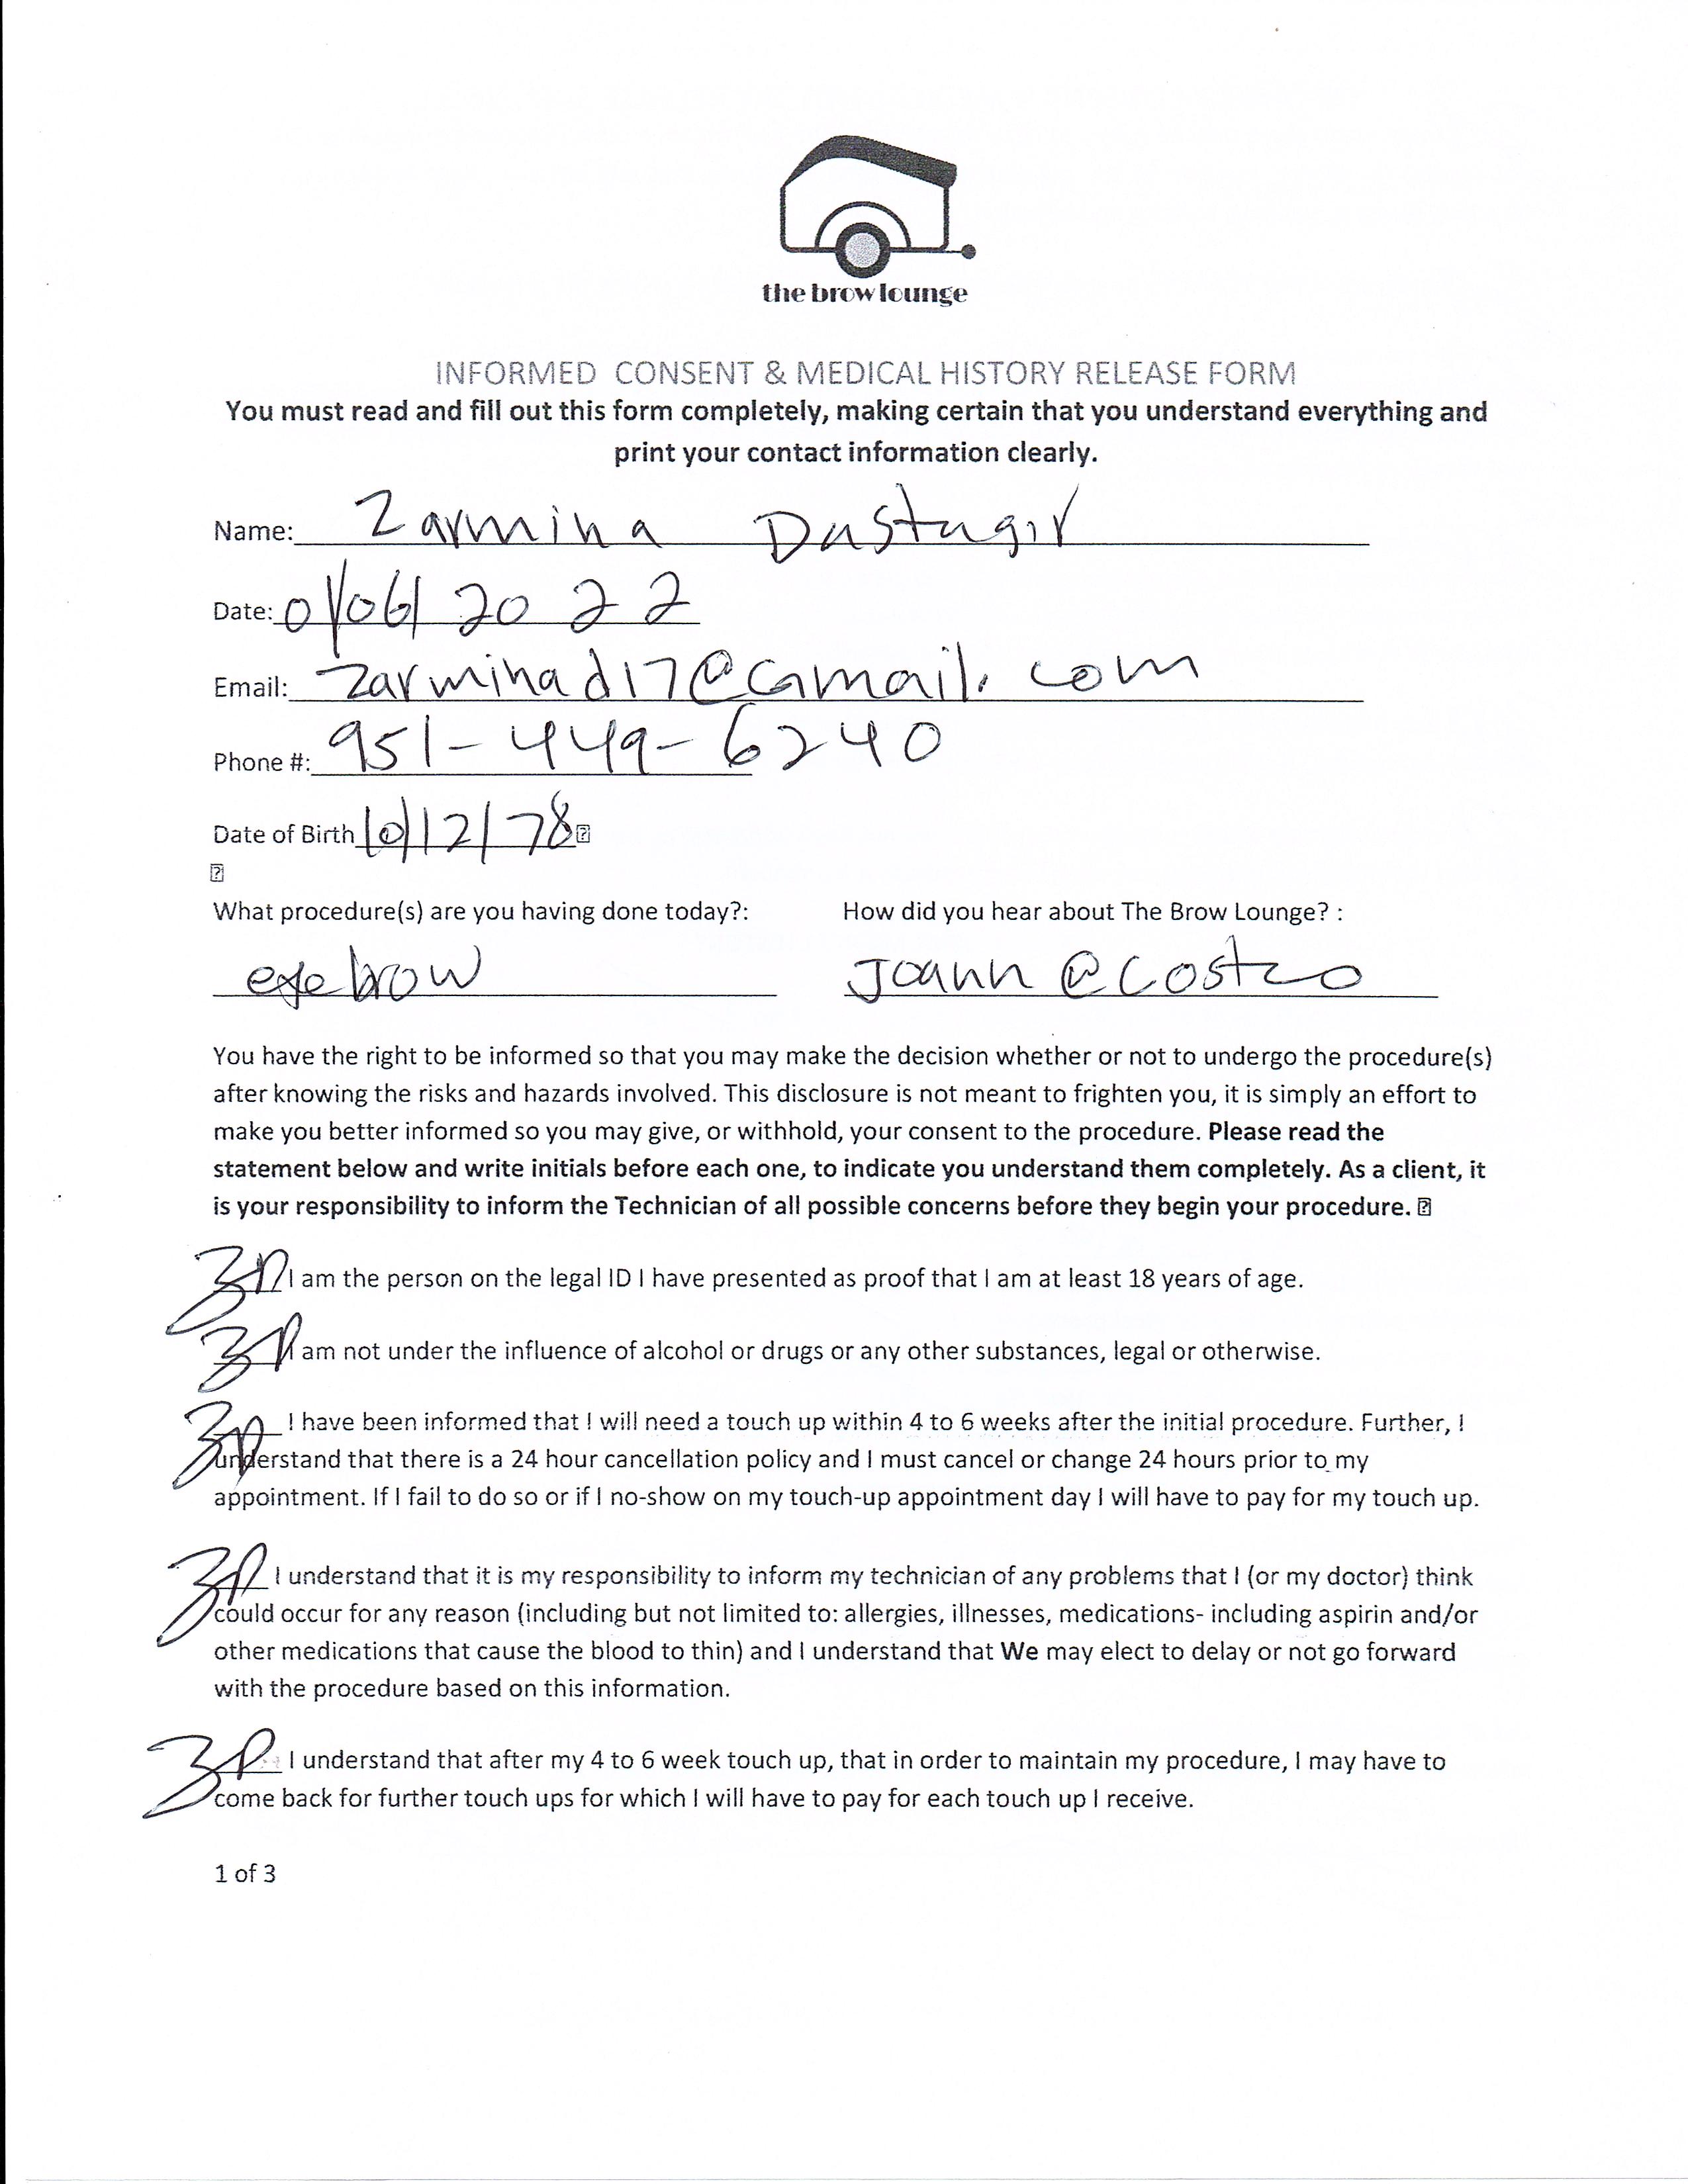 the brow lounge
INFORMED CONSENT & MEDICAL HISTORY RELEASE FORM
You must read and fill out this form completely, making certain that you understand everything and
print your contact information clearly.
Name: Zarmina Dastagir
Date: 01/06/2022
Email: Zarminad17@Gmail.com
Phone #: 951-449-6240
Date of Birth 10/12/78
What procedure(s) are you having done today?: How did you hear about The Brow Lounge? :
eyebrow Joann @ Costco
You have the right to be informed so that you may make the decision whether or not to undergo the procedure(s)
after knowing the risks and hazards involved. This disclosure is not meant to frighten you, it is simply an effort to
make you better informed so you may give, or withhold, your consent to the procedure. Please read the
statement below and write initials before each one, to indicate you understand them completely. As a client, it
is your responsibility to inform the Technician of all possible concerns before they begin your procedure.
ZD I am the person on the legal ID I have presented as proof that I am at least 18 years of age.
ZD I am not under the influence of alcohol or drugs or any other substances, legal or otherwise.
ZD I have been informed that I will need a touch up within 4 to 6 weeks after the initial procedure. Further, I
understand that there is a 24 hour cancellation policy and I must cancel or change 24 hours prior to my
appointment. If I fail to do so or if I no-show on my touch-up appointment day I will have to pay for my touch up.
ZD I understand that it is my responsibility to inform my technician of any problems that I (or my doctor) think
could occur for any reason (including but not limited to: allergies, illnesses, medications- including aspirin and/or
other medications that cause the blood to thin) and I understand that We may elect to delay or not go forward
with the procedure based on this information.
ZD I understand that after my 4 to 6 week touch up, that in order to maintain my procedure, I may have to
come back for further touch ups for which I will have to pay for each touch up I receive.
1 of 3